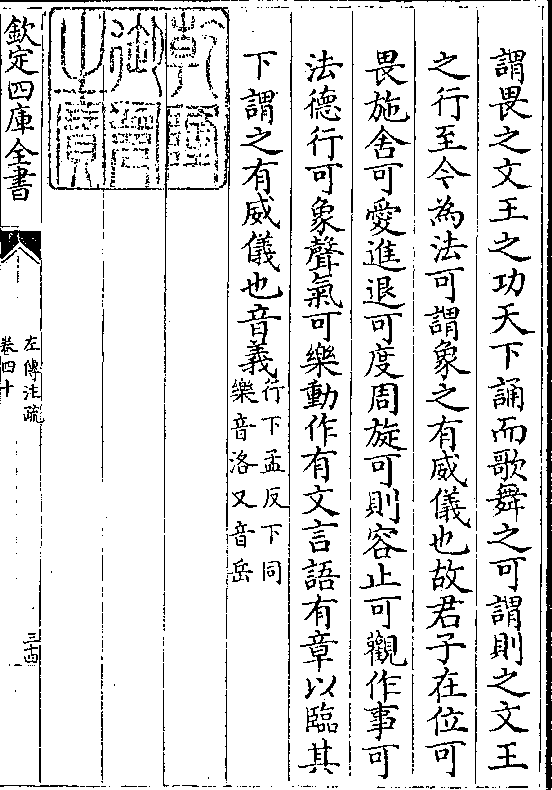 謂畏之文王之功天下誦而歌舞之可謂則之文王
之行至今為法可謂象之有威儀也故君子在位可
畏施舍可愛進退可度周旋可則容止可觀作事可
法德行可象聲氣可樂動作有文言語有章以臨其
下謂之有威儀也音義行下孟反下同
樂音洛又音岳
乾隆
御覽
之寶
欽定四庫全書
左傳注疏
卷四十
三十四